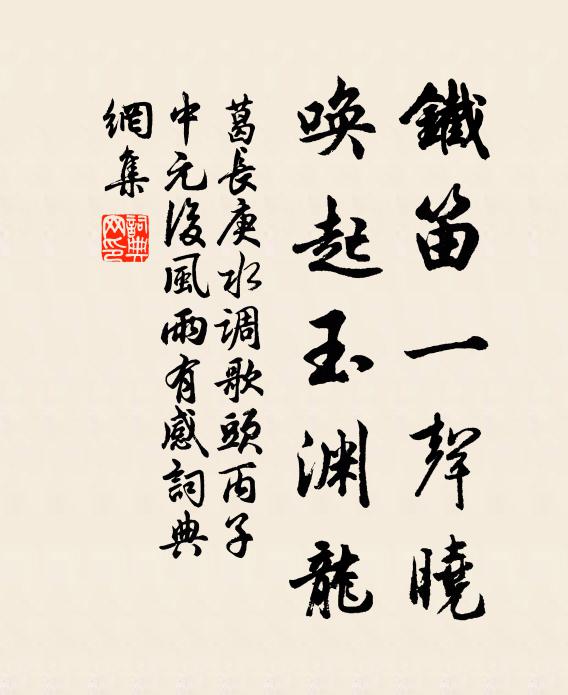 鐵笛一聲曉
喚起玉渊龍
葛長庚水调歌頭丙子
中元後風雨有感詞典
網集
詞典
网印